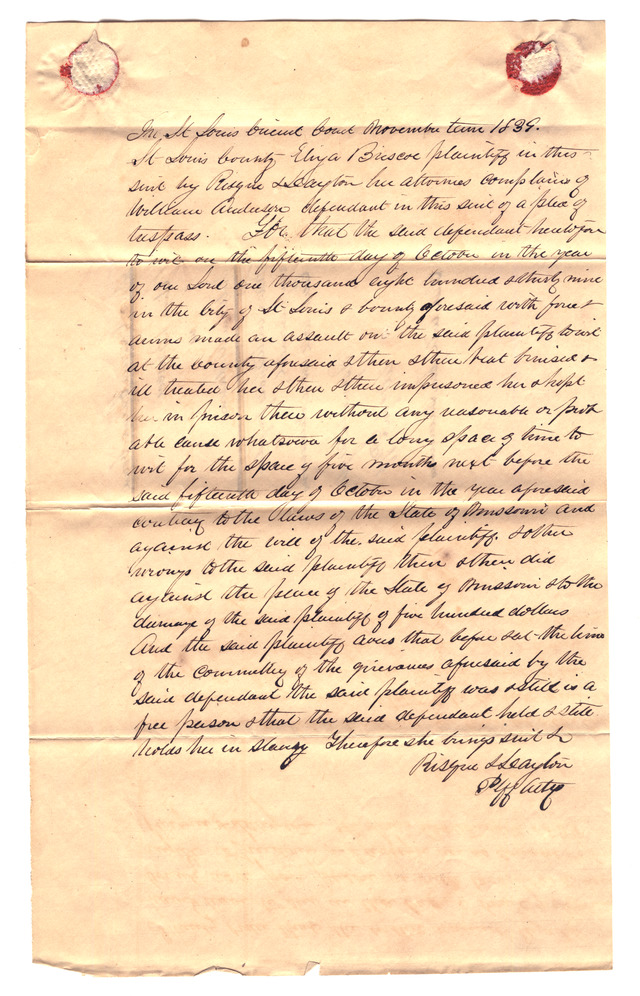 In St Louis Circuit Court November term 1839.
St Louis County Eliza Briscoe plaintiff in this
suit by Risque & Slayton her attornies complains of
William Anderson defendant in this suit of a plea of
trespass. For that the said defendant heretofore
to wit on the fifteenth day of October in the year
of our Lord one thousand eight hundred & thirty nine
in the City of St Louis & County aforesaid with force &
arms made an assault on the said plaintiff to wit
at the county aforesaid & then & there beat bruised &
ill treated her & then & there imprisoned her & kept
her in prison there without any reasonable or prob
able cause whatsoever for a long space of time to
wit for the space of five months next before the
said fifteenth day of October in the year aforesaid
contrary to the laws of the State of Missouri and
against the will of the said plaintiff. & other
wrongs to the said plaintiff then & there did
against the peace of the State of Missouri & to the
damage of the said plaintiff of five hundred dollars
And the said plaintiff avers that before & at the time
of the committing of the grievances aforesaid by the
said defendant the said plaintiff was & still is a
free person & that the said defendant held & still
holds her in slavery Therefore she brings suit &
Risque & Slayton
Plff Attys